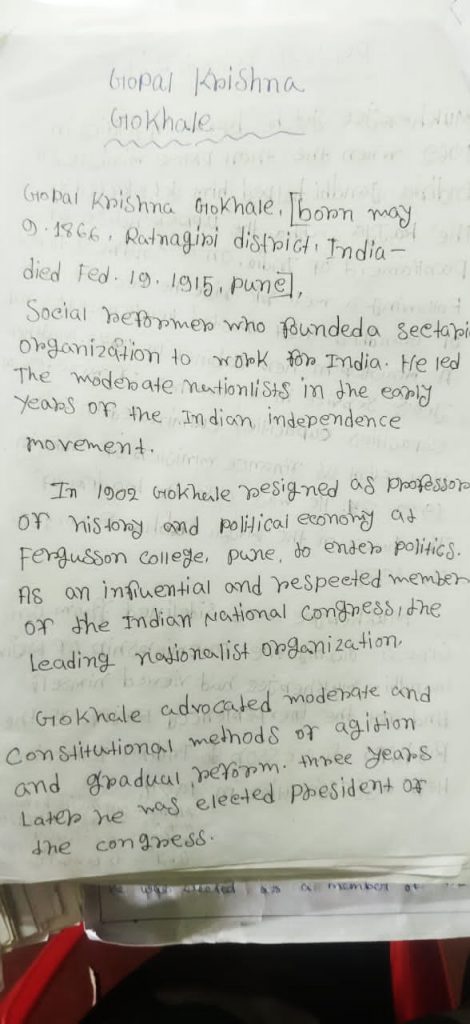 Gopal Krishna
Gokhale
Gopal Krishna Gokhale, [born may
9. 1866, Ratnagiri district, India -
died Fed. 19. 1915, pune],
Social reformer who foundeda sectari
organization to work for India. He led
The moderate nationlists in the early
years of the Indian independence
movement.
In 1902 Gokhale resigned as professor
of history and political economy at
Fergusson college, pune, to enter politics.
As an influential and respected member
of the Indian National Congress, the
leading nationalist organization.
Gokhale advocated moderate and
Constitutional methods of agition
and gradual reform. three years
Later he was elected president of
the congress.
was elected as a member of